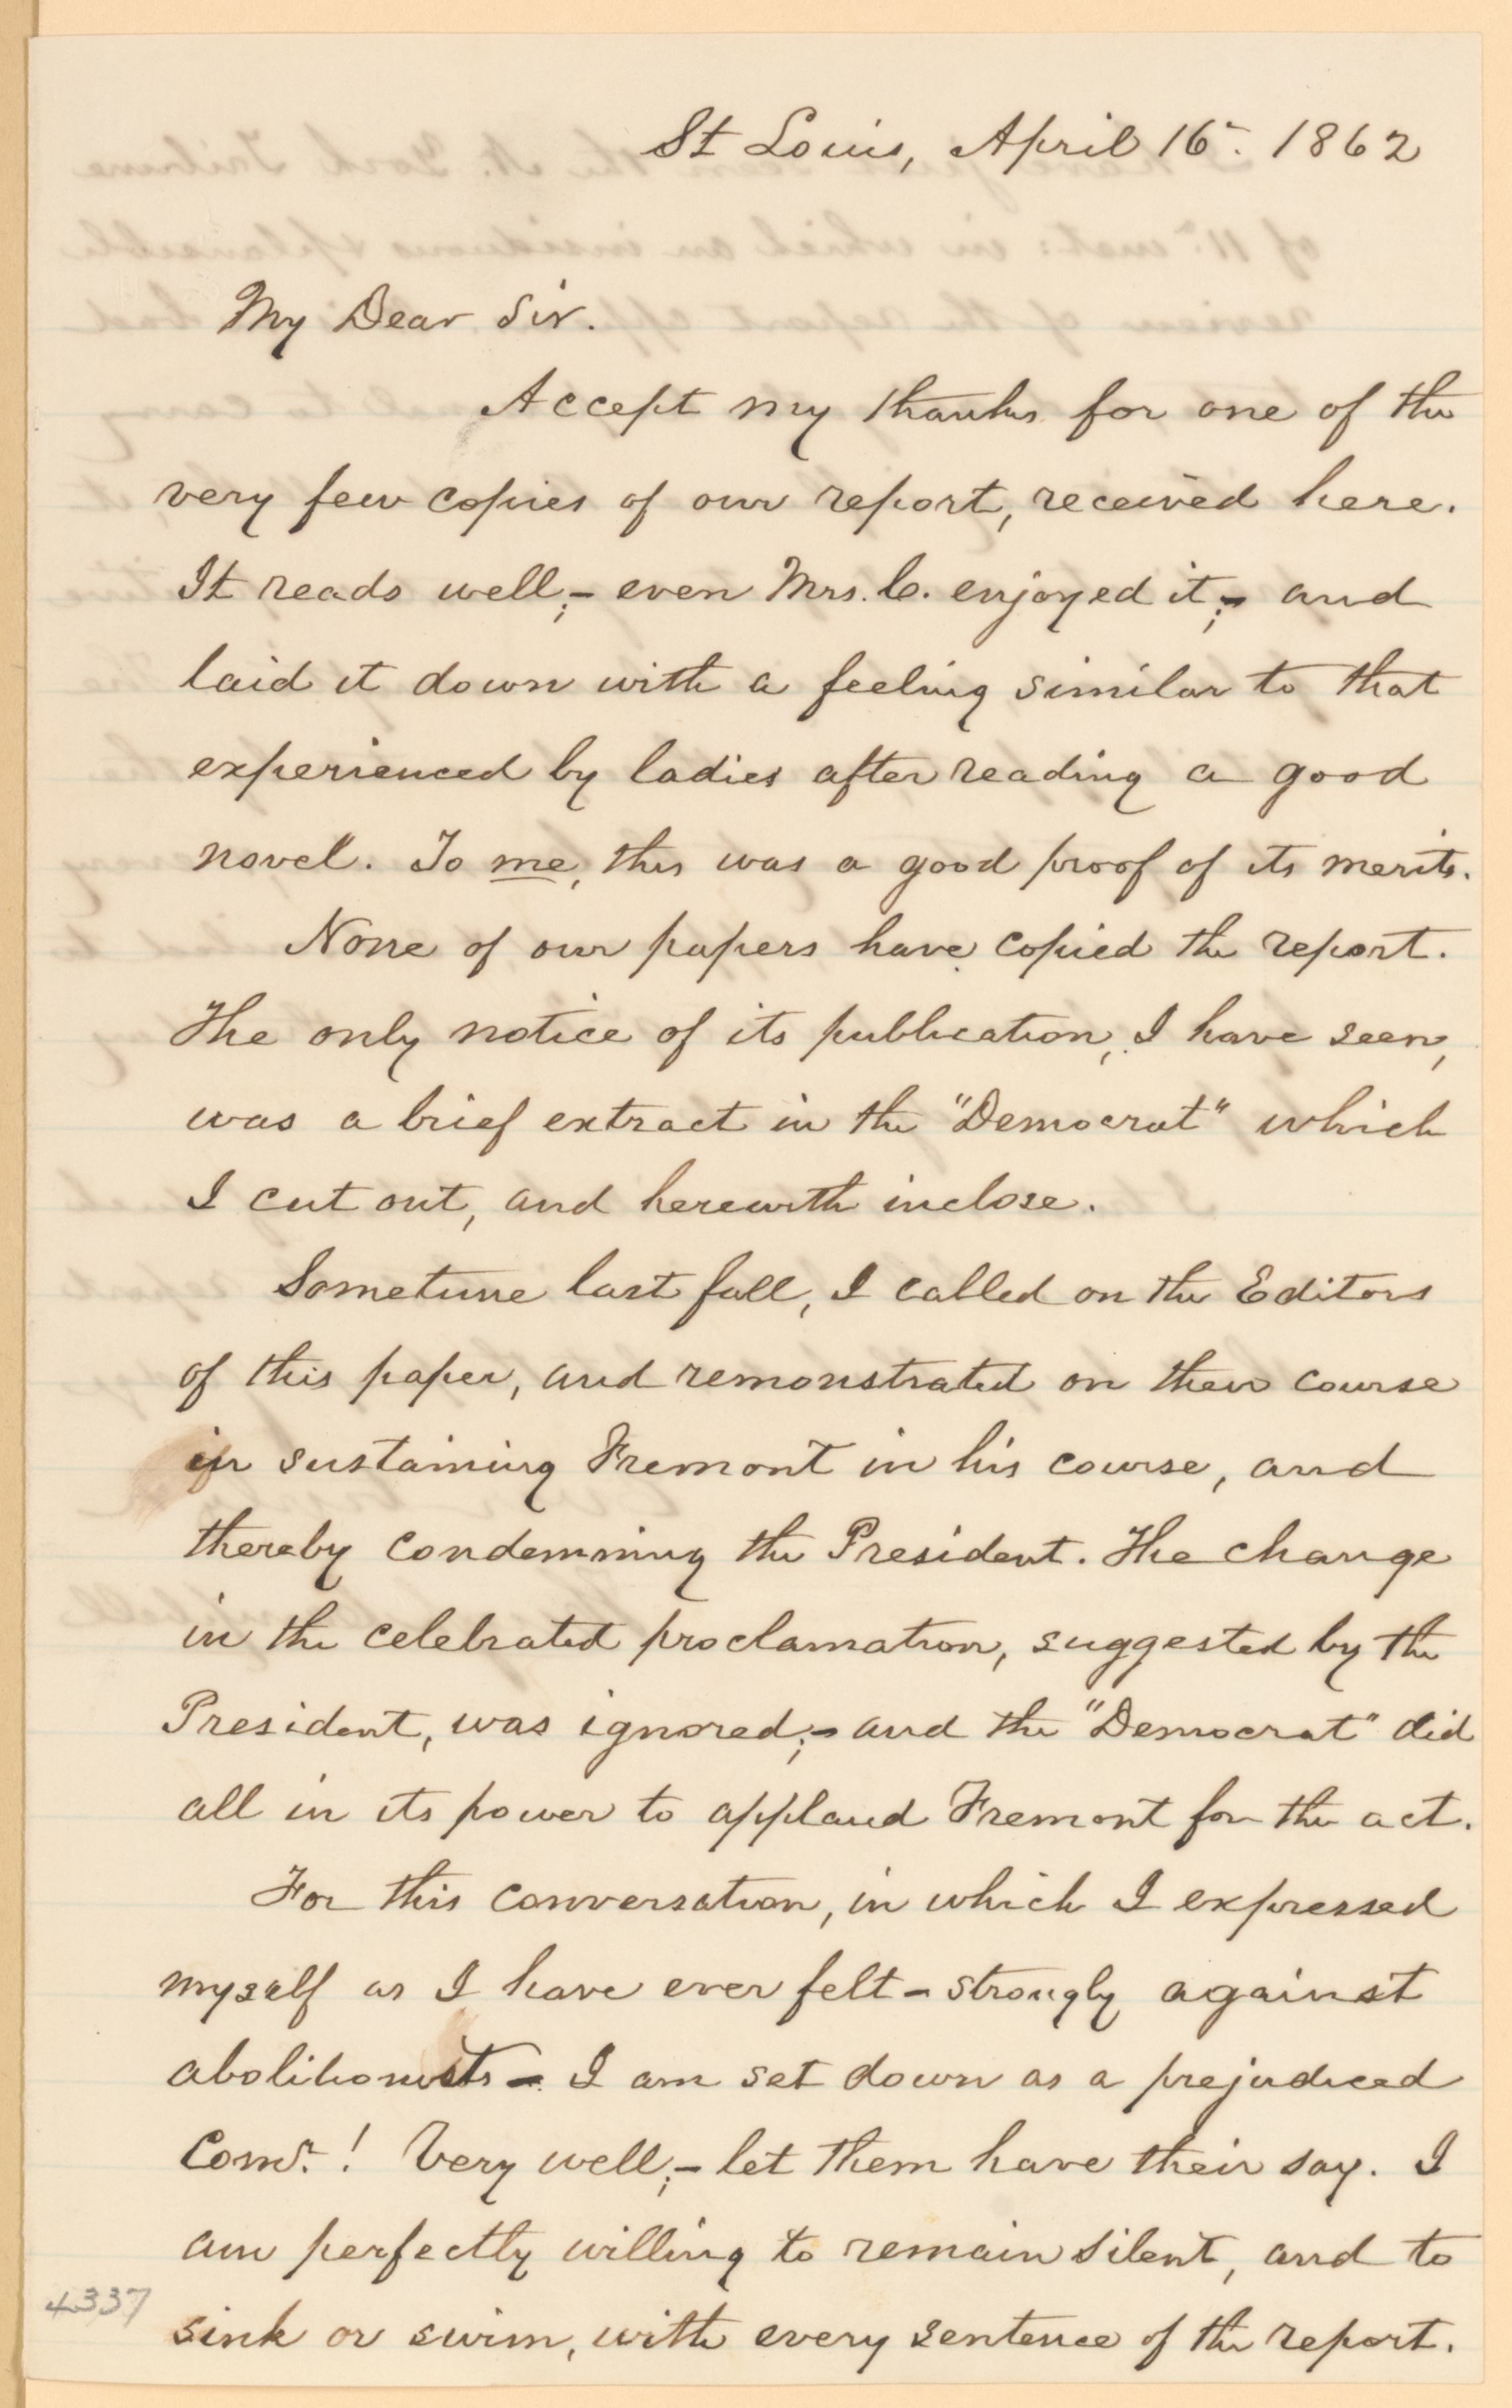 St Louis, April 16. 1862
My Dear Sir.
Accept my thanks for one of the
very few copies of our report, received here.
It reads well;- even Mrs. C. enjoyed it;- and
laid it down with a feeling similar to that
experienced by ladies after reading a good
novel. To me, this was a good proof of its merits.
None of our papers have copied the report.
The only notice of its publication, I have seen,
was a brief extract in the "Democrat" which
I cut out, and herewith inclose.
Sometime last fall, I called on the Editors
of this paper, and remonstrated on their course
in sustaining Fremont in his course, and
thereby condemning the President. The change
in the celebrated proclamation, suggested by the
President, was ignored;- and the "Democrat" did
all in its power to applaud Fremont for the act.
For this conversation, in which I expressed
myself as I have ever felt - strongly against
abolitionists - I am set down as a prejudiced
Comr.! Very well;- let them have their say. I
am perfectly willing to remain silent, and to
sink or swim, with every sentence of the report.
4337